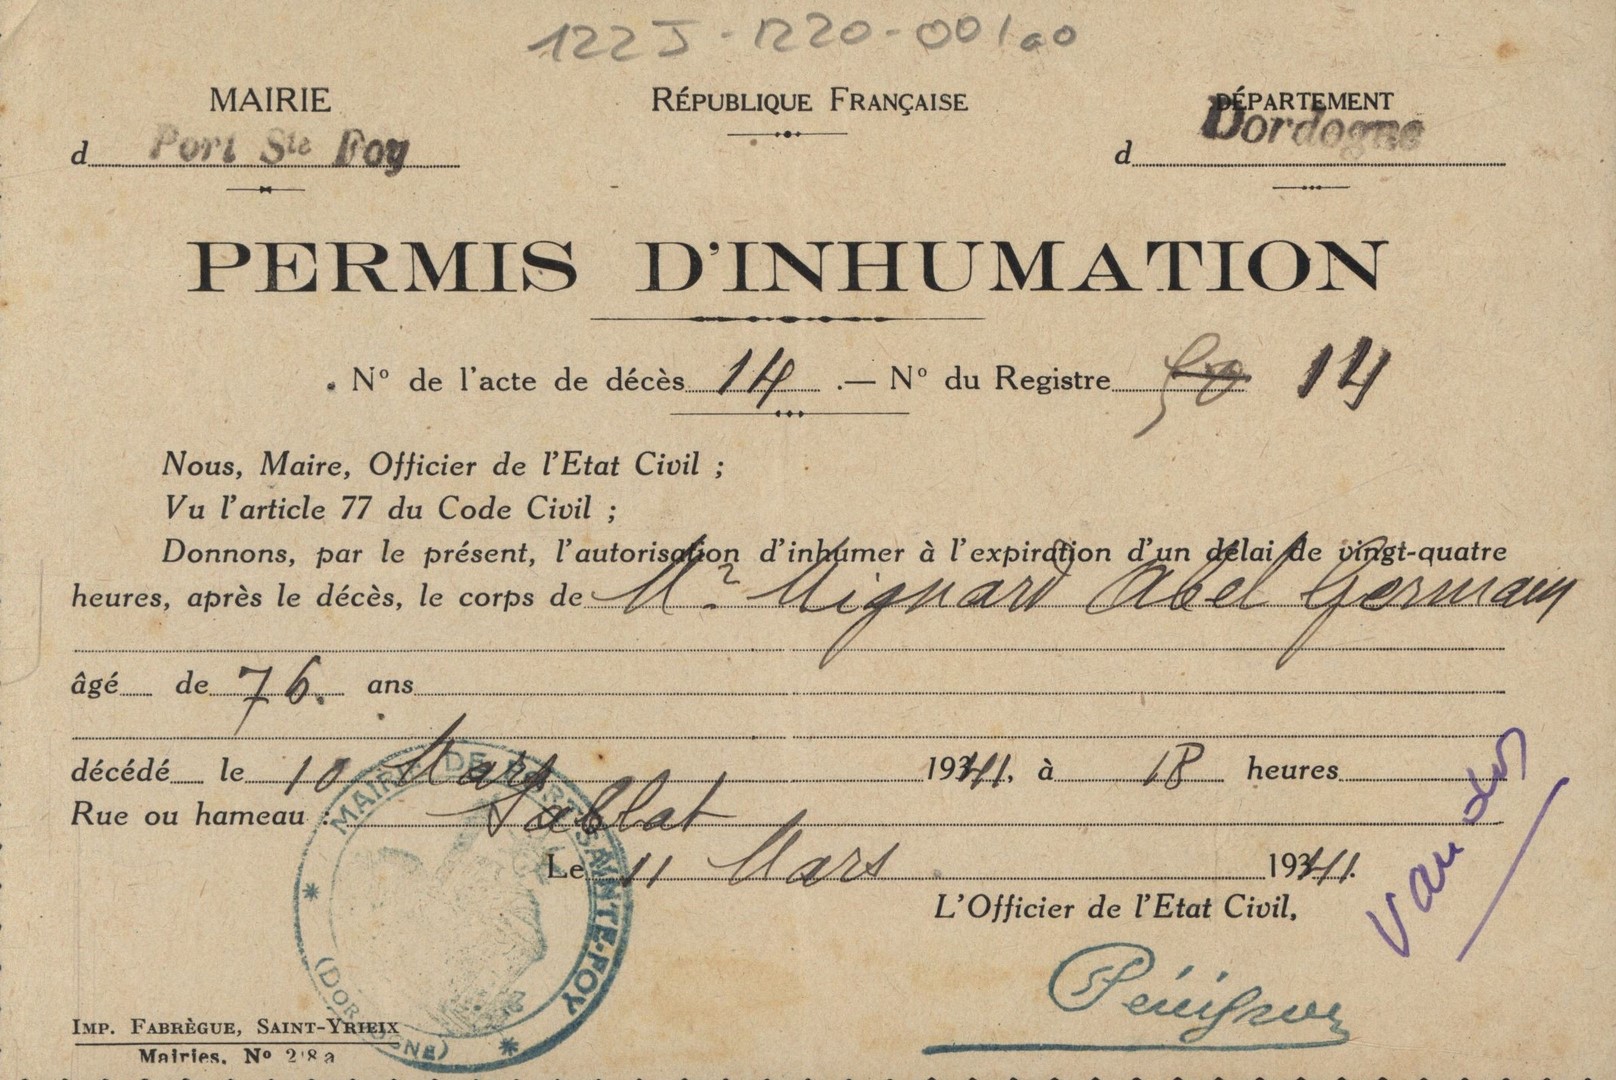 122J-1220-00100
MAIRIE
d Port Ste Foy
RÉPUBLIQUE FRANÇAISE
DÉPARTEMENT
d Dordogne
PERMIS D'INHUMATION
. N° de l'acte de décès 14 .— N° du Registre 50 14
Nous, Maire, Officier de l'Etat Civil ;
Vu l'article 77 du Code Civil ;
Donnons, par le présent, l'autorisation d'inhumer à l'expiration d'un délai de vingt-quatre
heures, après le décès, le corps de Mr Mignard Abel Germain
âgé de 76. ans
décédé le 10 Mars 1941, à 18 heures
Rue ou hameau : Sablat
Le 11 Mars 1941.
L'Officier de l'Etat Civil,
MAIRIE DE PORT-SAINTE-FOY
(DORDOGNE)
IMP. FABRÈGUE, SAINT-YRIEIX
Mairies. N° 28a